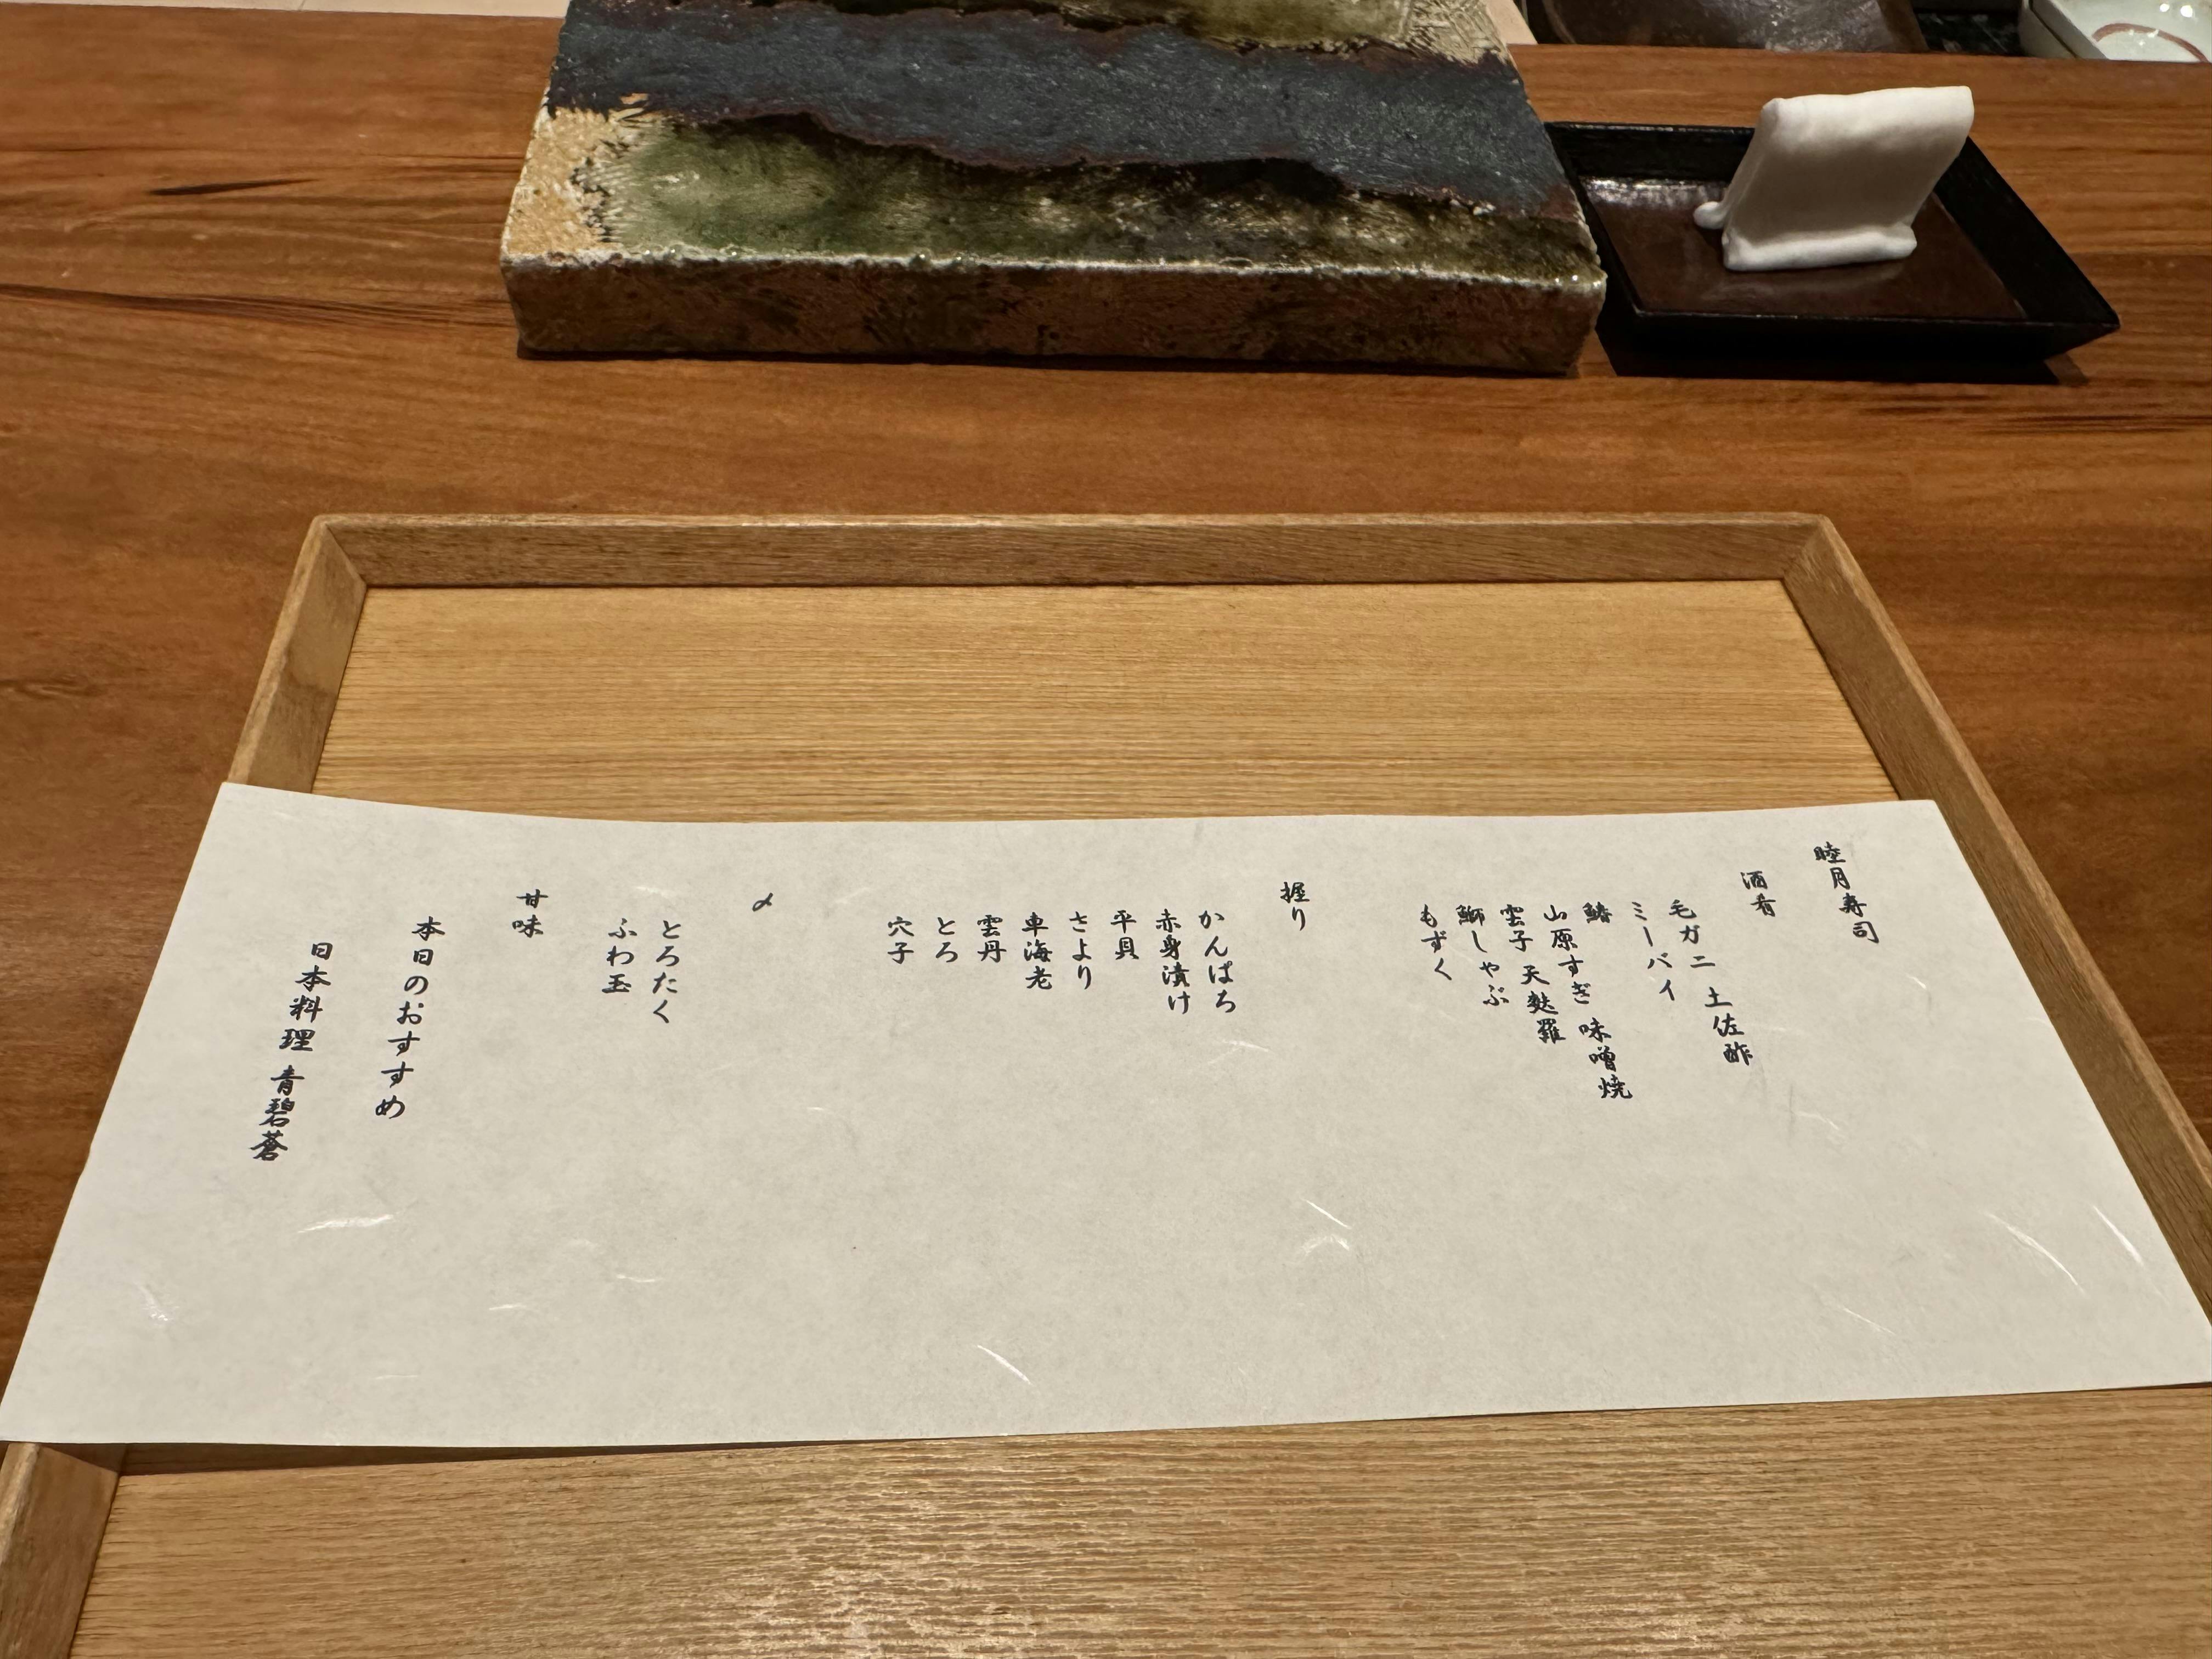 睦月寿司
酒肴
毛ガニ 土佐酢
ミーバイ
鰆
山原すぎ 味噌焼
雲子 天麩羅
鰤しゃぶ
もずく
握り
かんぱち
赤身漬け
平貝
さより
車海老
雲丹
とろ
穴子
〆
とろたく
ふわ玉
甘味
本日のおすすめ
日本料理 青碧蒼